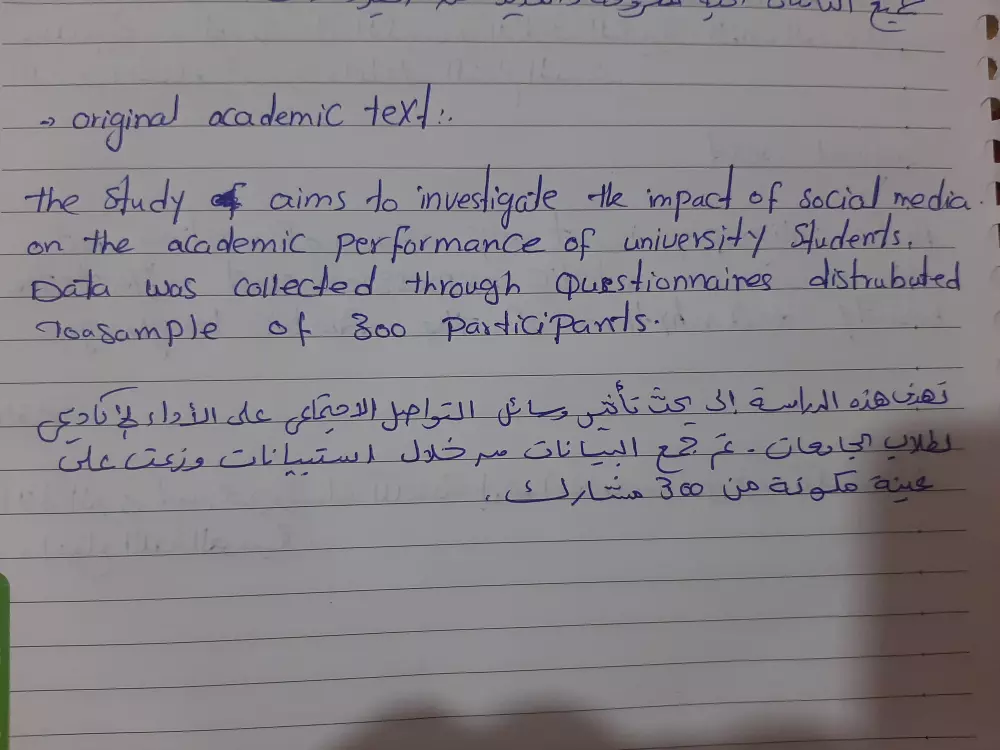 → original academic text:.
the study of aims to investigate the impact of social media.
on the academic performance of university students.
Data was collected through Questionnaires distrubuted
To a sample of 300 participants.
تهدف هذه الدراسة إلى بحث تأثير وسائل التواصل الاجتماعي على الأداء الأكاديمي
لطلاب الجامعات. تم جمع البيانات من خلال استبيانات وزعت على
عينة مكونة من 300 مشارك.